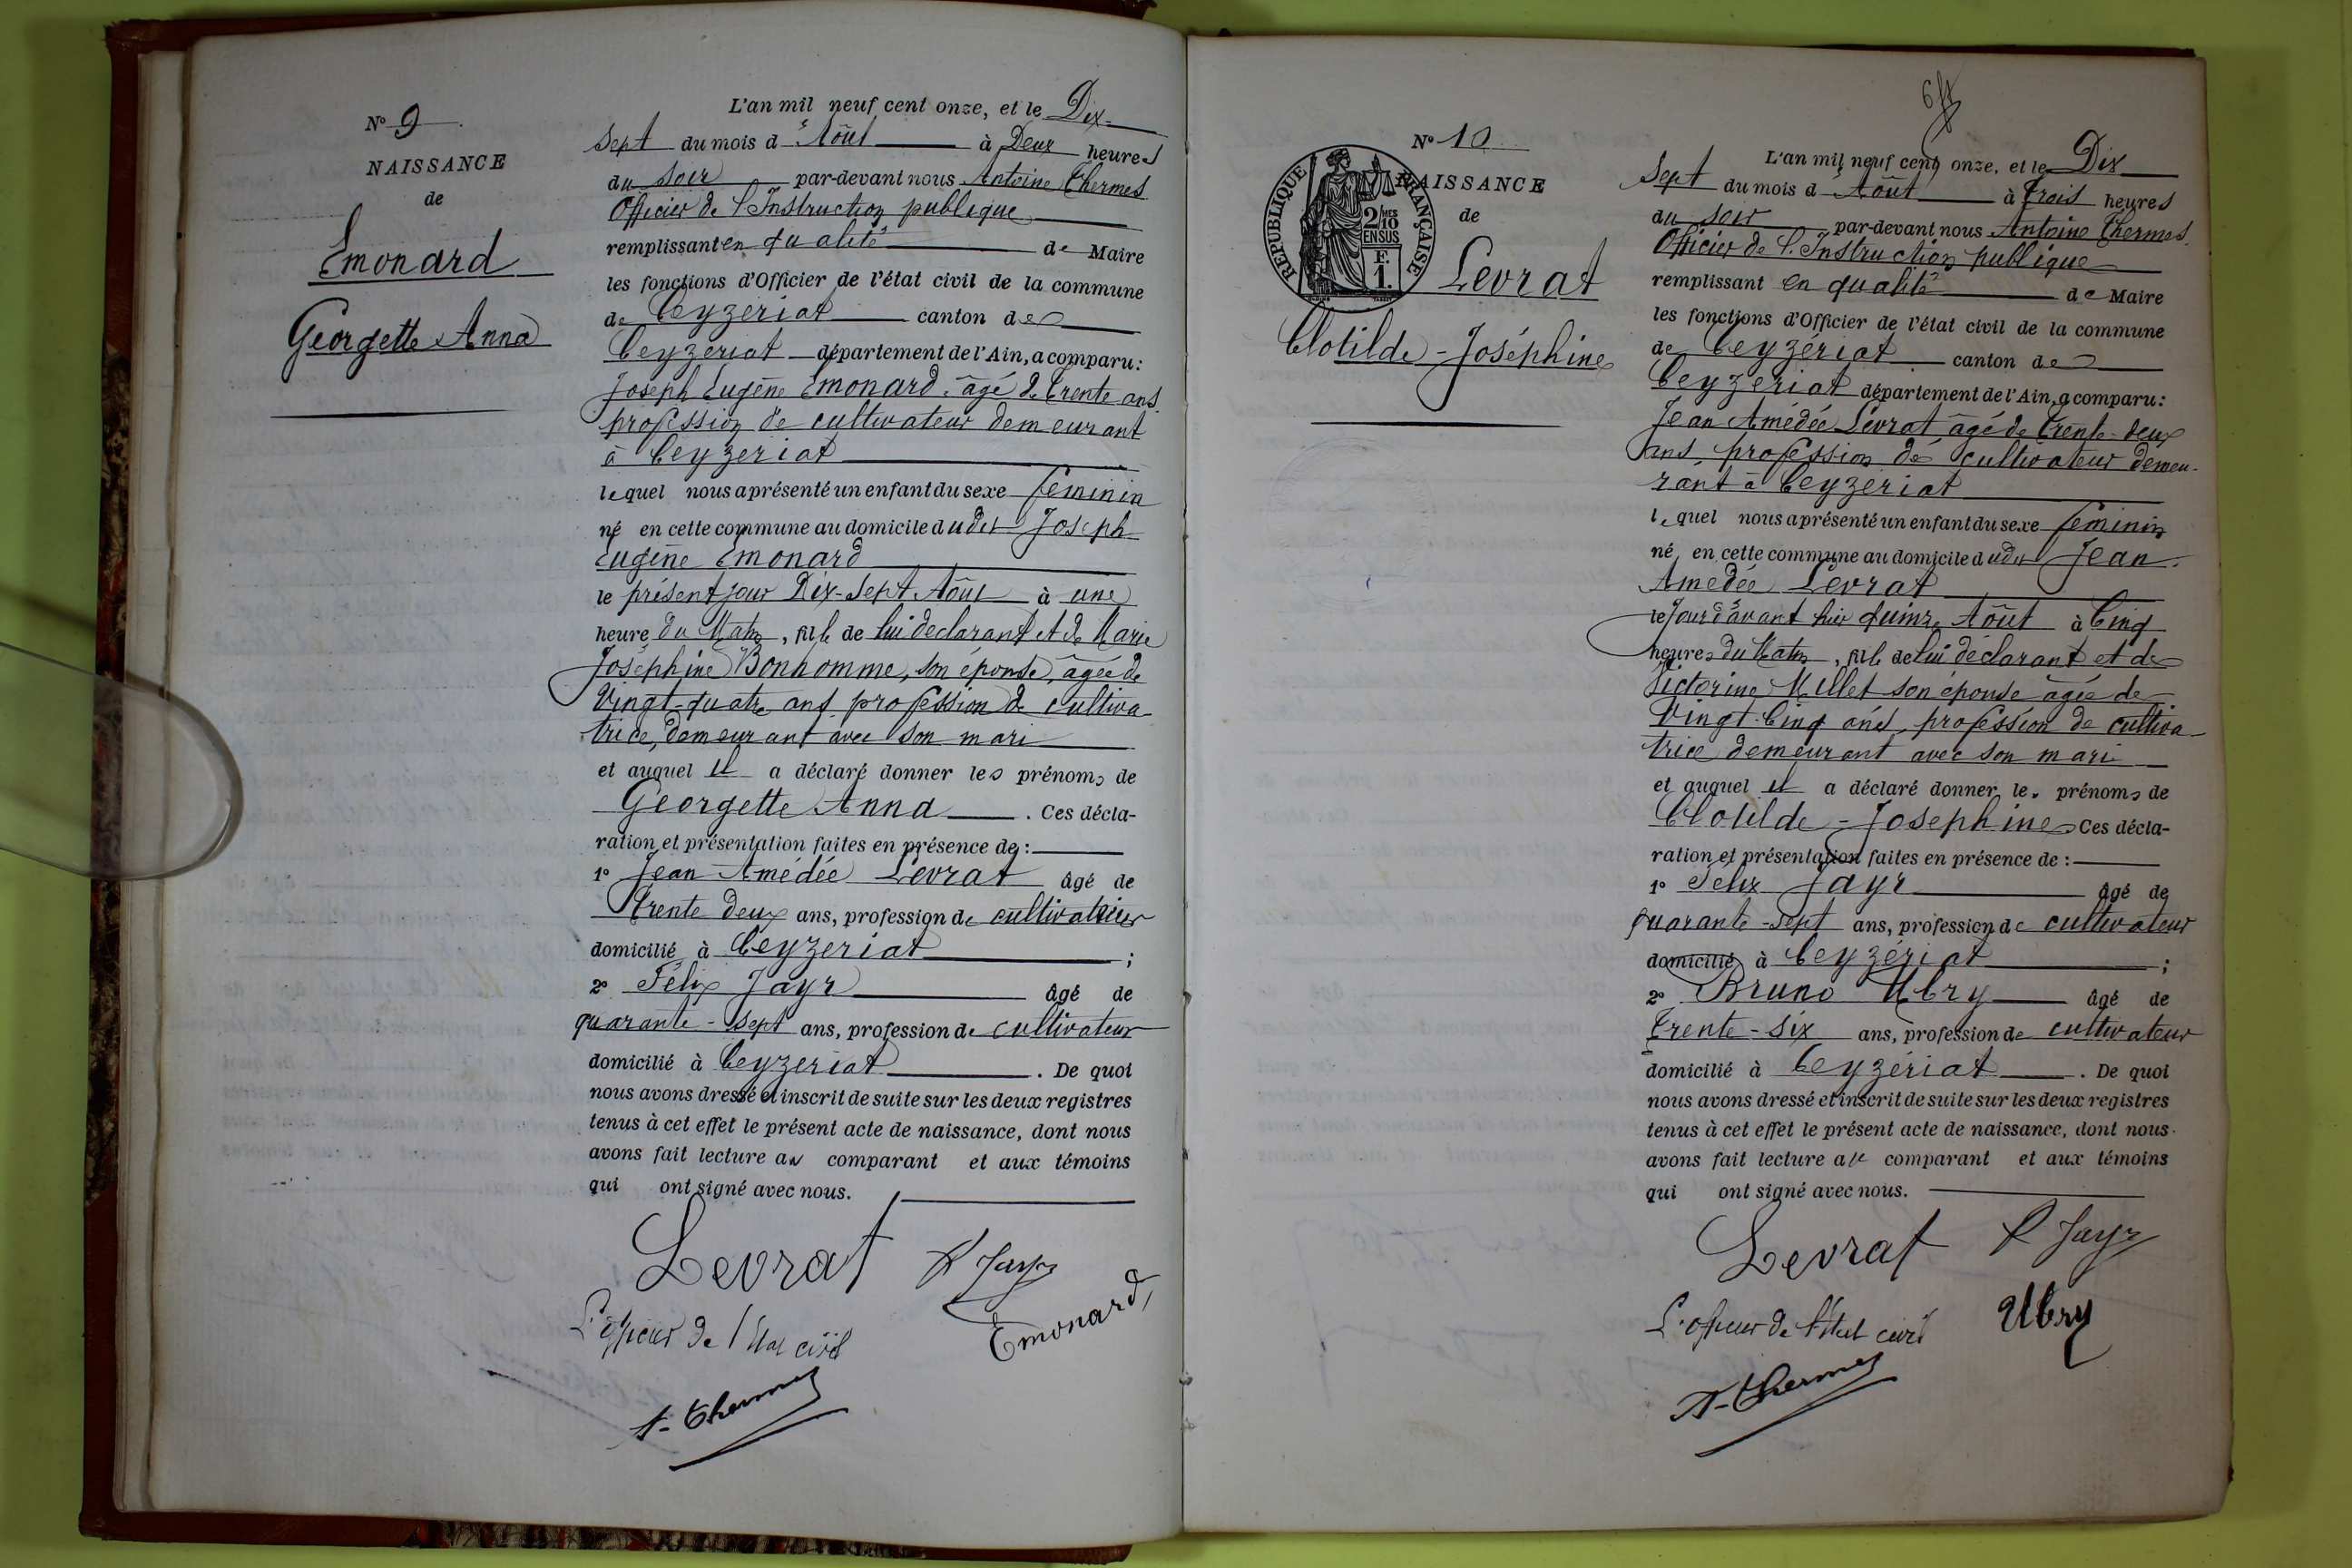 N° 9
NAISSANCE
de
Emonard
Georgette Anna
L'an mil neuf cent onze, et le Dix-
sept du mois d'Aôut à Deux heures
du soir par-devant nous Antoine Thermes
Officier de l'Instruction publique
remplissant en qualité de Maire
les fonctions d'Officier de l'état civil de la commune
de Ceyzériat canton de
Ceyzeriat département de l'Ain, a comparu :
Joseph Eugène Emonard, âgé de Trente ans
profession de cultivateur demeurant
à Ceyzeriat
lequel nous a présenté un enfant du sexe féminin
né en cette commune au domicile dudit Joseph
Eugène Emonard
le présent jour Dix-Sept Aôut à une
heure du Matin, fille de lui declarant et de Marie
Joséphine Bonhomme, son épouse, âgée de
Vingt-quatre ans, profession de cultiva-
trice, demeurant avec son mari
et auquel il a déclaré donner les prénoms de
Georgette Anna. Ces décla-
ration et présentation faites en présence de :
1° Jean Amédée Levrat âgé de
Trente deux ans, profession de cultivateur
domicilié à Ceyzeriat ;
2° Félix Jayr âgé de
quarante-sept ans, profession de cultivateur
domicilié à Ceyzeriat. De quoi
nous avons dressé et inscrit de suite sur les deux registres
tenus à cet effet le présent acte de naissance, dont nous
avons fait lecture au comparant et aux témoins
qui ont signé avec nous.
Levrat F Jayr
L'officier de l'Etat civil Emonard
A. Thermes
6
N° 10
NAISSANCE
de
RÉPUBLIQUE FRANÇAISE
2/10 MES
EN SUS
F.
1.
Levrat
Clotilde-Joséphine
L'an mil neuf cent onze, et le Dix
sept du mois d'Aôut à Trois heures
du soir par-devant nous Antoine Thermes
Officier de l'Instruction publique
remplissant en qualité de Maire
les fonctions d'Officier de l'état civil de la commune
de Ceyzériat canton de
Ceyzeriat département de l'Ain, a comparu :
Jean Amédée Levrat âgé de Trente-deux
ans, profession de cultivateur demeu-
rant à Ceyzeriat
lequel nous a présenté un enfant du sexe féminin
né en cette commune au domicile dudit Jean
Amédée Levrat
le Jour d'avant hier quinze Aôut à Cinq
heures du Matin, fille de lui déclarant et de
Victorine Millet son épouse âgée de
Vingt-Cinq ans, profession de cultiva-
trice demeurant avec son mari
et auquel il a déclaré donner les prénoms de
Clotilde-Josephine Ces décla-
ration et présentation faites en présence de :
1° Félix Jayr âgé de
quarante-sept ans, profession de cultivateur
domicilié à Ceyzériat ;
2° Bruno Ubry âgé de
Trente-six ans, profession de cultivateur
domicilié à Ceyzériat. De quoi
nous avons dressé et inscrit de suite sur les deux registres
tenus à cet effet le présent acte de naissance, dont nous
avons fait lecture au comparant et aux témoins
qui ont signé avec nous.
Levrat F Jayr
L'officier de l'Etat civil Ubry
A. Thermes